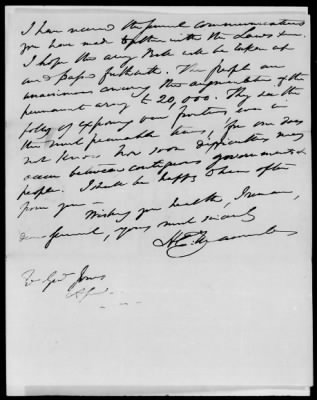 I have received the several communications
you have made together with the Laws &c.
I hope the army Bill will be taken up
and pass forthwith. The people are
unanimous among the augmentation of the
permanent army to 20,000. They see the
folly of exposing our frontiers even in
the most peaceable times, for one does
not know how soon difficulties may
occur between contiguous governments &
people. I shall be happy to hear often
from you —
Wishing you health, I remain,
dear General, yours most sincerely
To Genl Jones